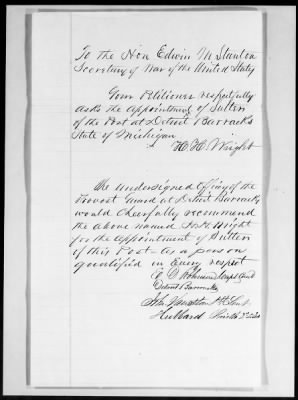 To the Hon Edwin M Stanton
Secretary of War of the United States
Your Petitioner respectfully
asks the appointment of Sutler
of the Post at Detroit Barracks
State of Michigan
H H Wright
The undersigned Officers of the
Provost Guard at Detroit Barracks
would Cheerfully recommend
the above named H H Wright
for the appointment of Sutler
of this Post as a person
qualified in Every respect
Detroit Barracks
Hubbard Smith